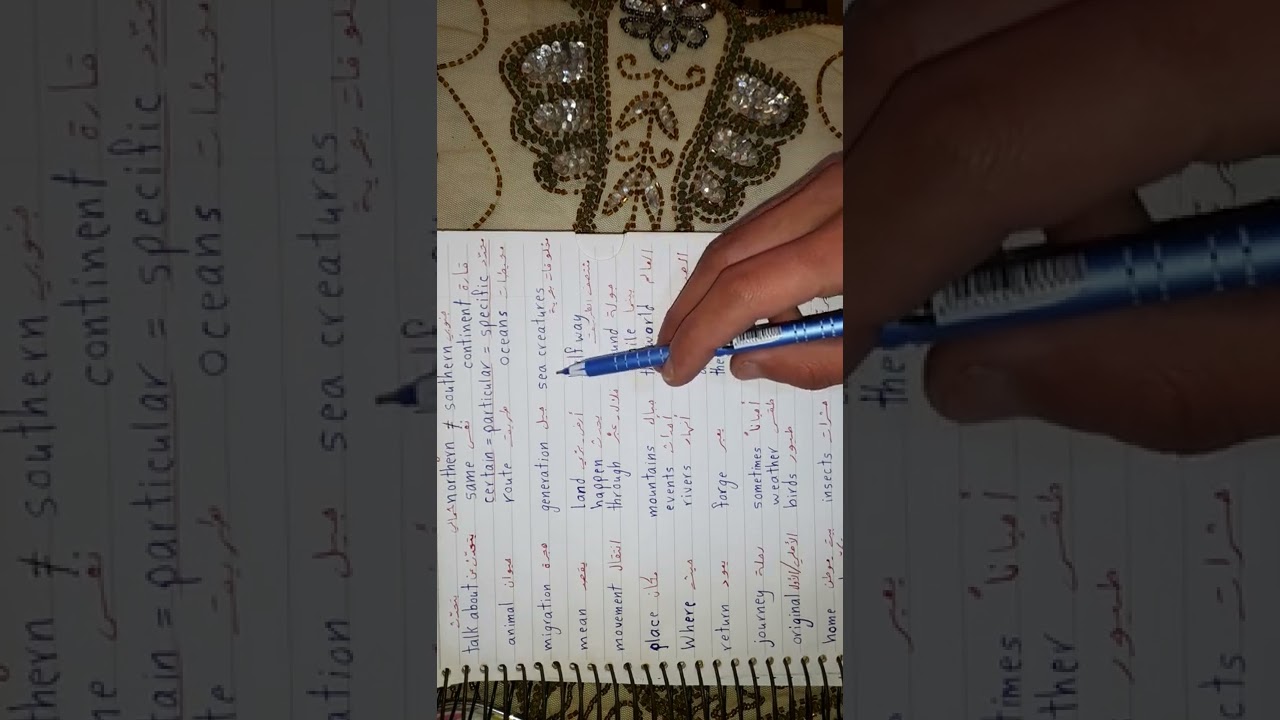 northern شمالي ≠ southern جنوبي
talk about يتحدث عن same نفس continent قارة
certain = particular = specific محدد
animal حيوان route طريق oceans محيطات
migration هجرة generation جيل sea creatures مخلوقات بحرية
mean يقصد land أرض way منتصف الطريق
happen يحدث
movement انتقال through خلال جولة
place مكان mountains جبال world العالم
events أحداث بينما
Where حيث rivers أنهار
return يعود forge يعبر the
journey رحلة sometimes أحياناً
weather طقس
original birds طيور
home بيت موطن insects حشرات